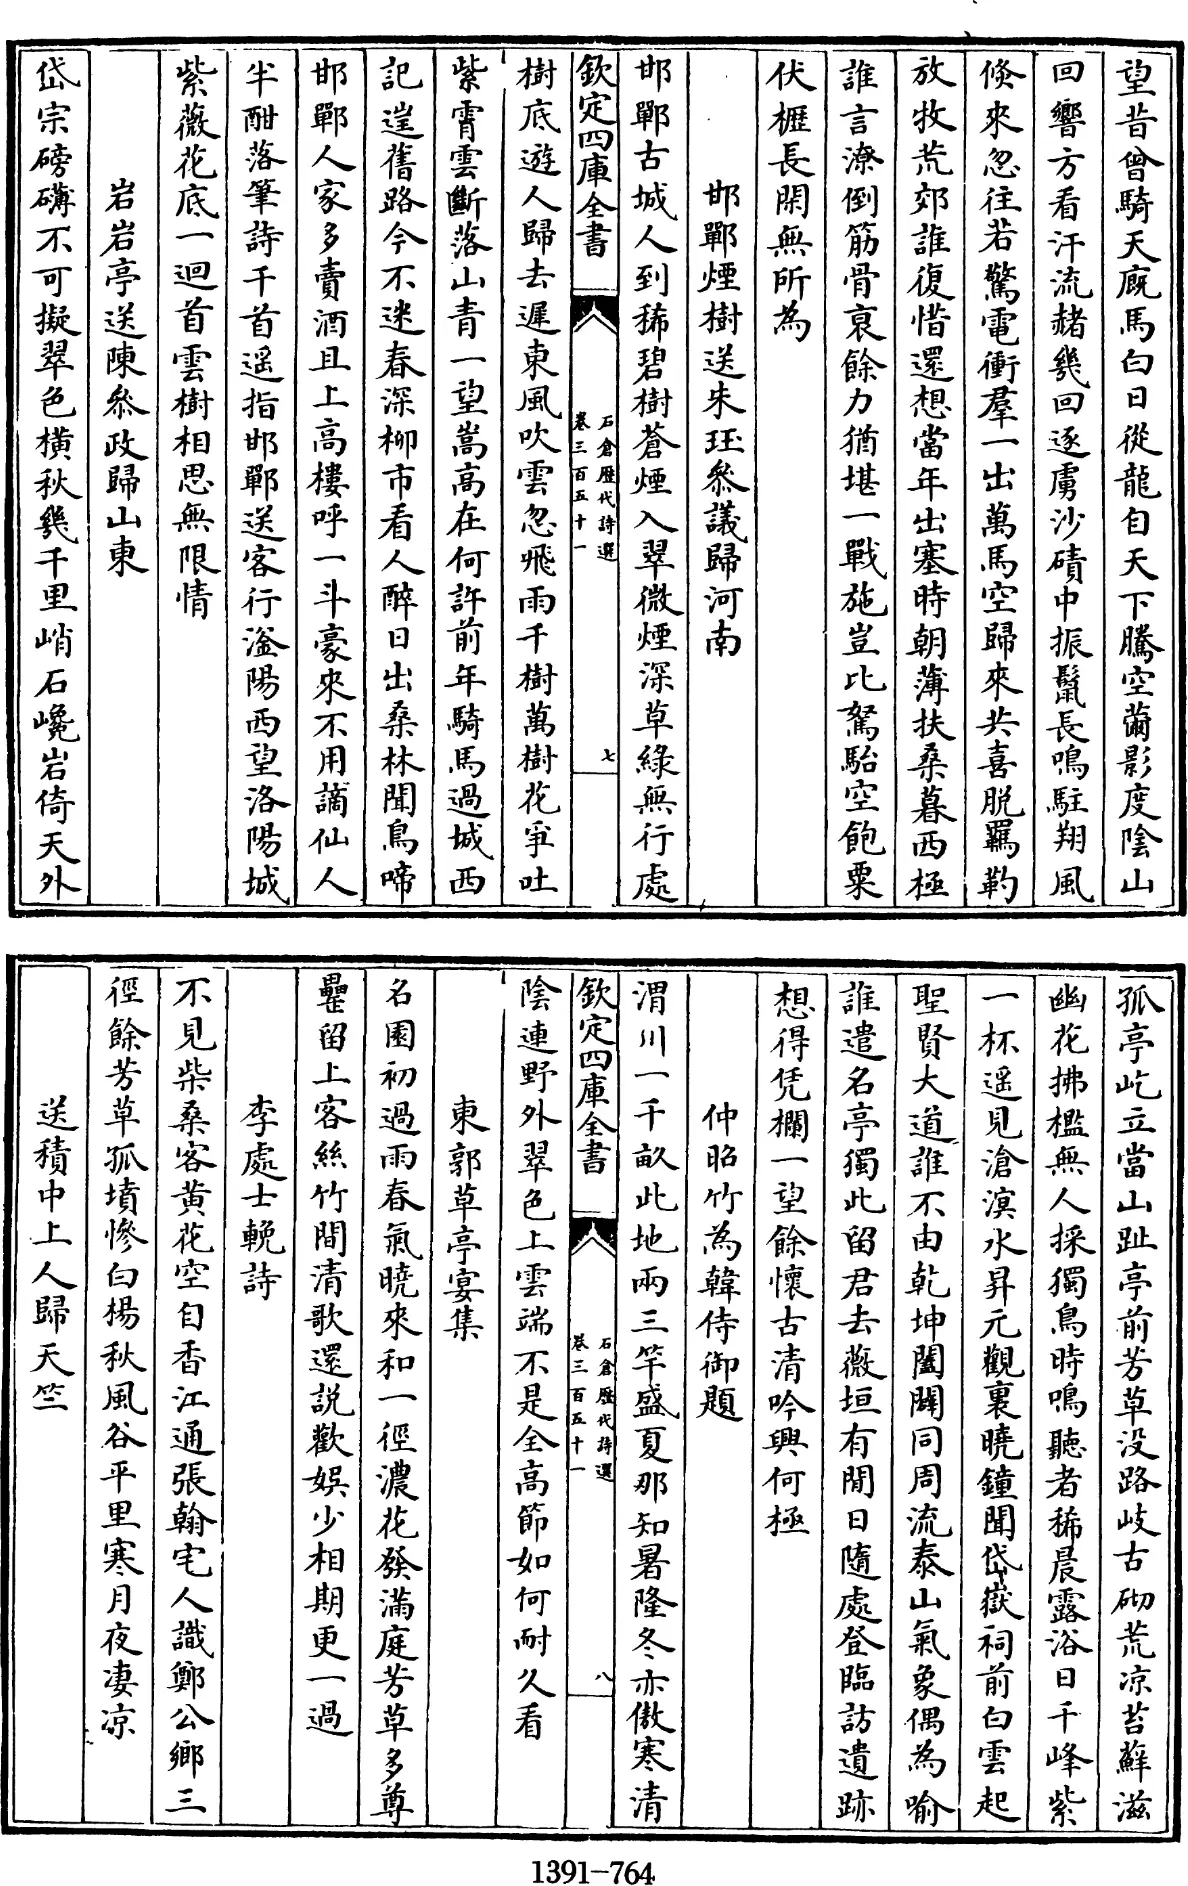 望昔曾騎天廐馬白日從龍自天下騰空薾影度陰山
回響方看汗流赭幾回逐虜沙磧中振鬛長鳴駐翔風
倐來忽往若驚電衝羣一出萬馬空歸來共喜脱羈靮
放牧荒郊誰復惜還想當年出塞時朝薄扶桑暮西極
誰言潦倒筋骨哀餘力猶堪一戰施豈比駑駘空飽粟
伏櫪長閑無所為
邯鄲煙樹送朱珏叅議歸河南
邯鄲古城人到稀碧樹蒼煙入翠微煙深草緑無行處
欽定四庫全書
石倉歴代詩選
卷三百五十一
七
樹底遊人歸去遲東風吹雲忽飛雨千樹萬樹花爭吐
紫霄雲斷落山青一望嵩高在何許前年騎馬過城西
記遑舊路今不迷春深柳市看人醉日出桑林聞鳥啼
邯鄲人家多賣酒且上高樓呼一斗豪來不用謫仙人
半酣落筆詩千首遥指邯鄲送客行滏陽西望洛陽城
紫薇花底一迴首雲樹相思無限情
岩岩亭送陳叅政歸山東
岱宗磅礴不可擬翠色横秋幾千里峭石巉岩倚天外
孤亭屹立當山趾亭前芳草没路岐古砌荒凉苔蘚滋
幽花拂檻無人採獨鳥時鳴聽者稀晨露浴日千峰紫
一杯遥見滄溟水昇元觀裏曉鐘聞岱嶽祠前白雲起
聖賢大道誰不由乾坤闔闢同周流泰山氣象偶為喻
誰遣名亭獨此留君去薇垣有閒日隨處登臨訪遺跡
想得凭欄一望餘懷古清吟興何極
仲昭竹為韓侍御題
渭川一千畝此地兩三竿盛夏那知暑隆冬亦傲寒清
欽定四庫全書
石倉歴代詩選
卷三百五十一
八
陰連野外翠色上雲端不是全高節如何耐久看
東郭草亭宴集
名園初過雨春氣曉來和一徑濃花發滿庭芳草多尊
罍留上客絲竹間清歌還説歡娯少相期更一過
李處士輓詩
不見柴桑客黄花空自香江通張翰宅人識鄭公鄉三
徑餘芳草孤墳慘白楊秋風谷平里寒月夜凄凉
送積中上人歸天竺
1391-764